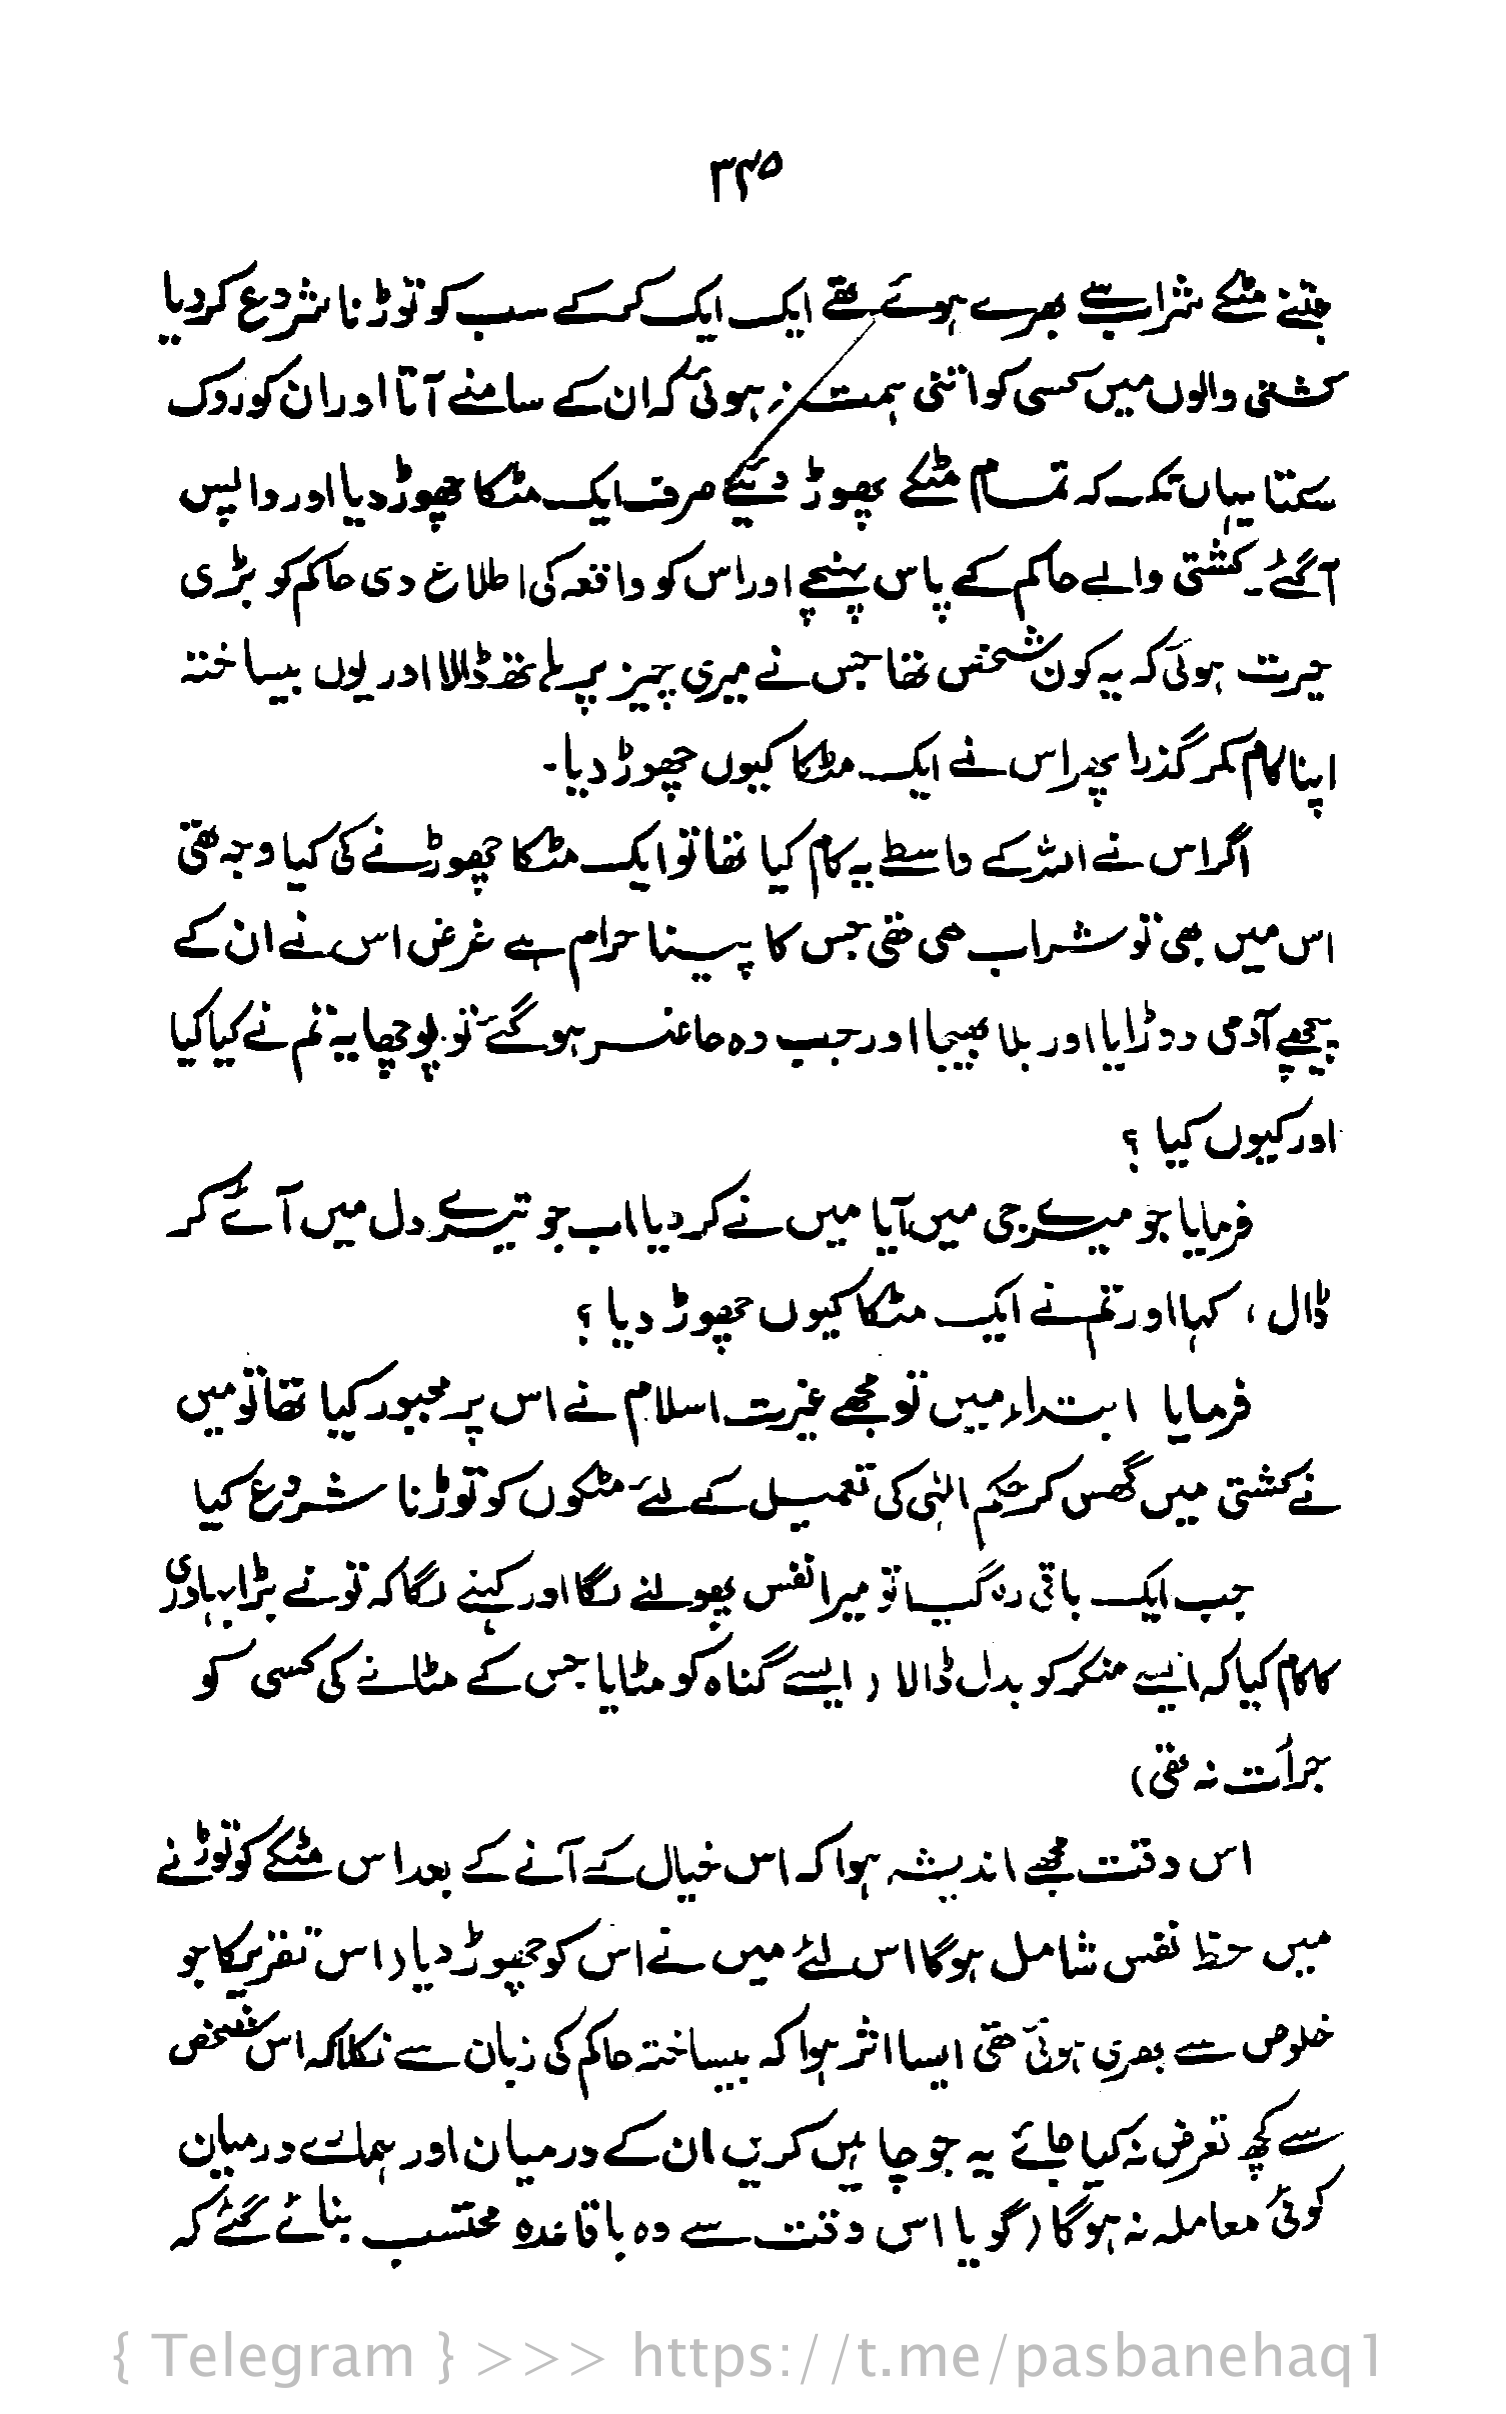 ۳۴۵
جتنے مٹکے شراب سے بھرے ہوئے تھے ایک ایک کر کے سب کو توڑنا شروع کردیا
کشتی والوں میں کسی کو اتنی ہمت نہ ہوئی کہ ان کے سامنے آتا اور ان کو روک
سکتا یہاں تک کہ تمام مٹکے پھوڑ دیئے صرف ایک مٹکا چھوڑ دیا اور واپس
آگئے۔ کشتی والے حاکم کے پاس پہنچے اور اس کو واقعہ کی اطلاع دی حاکم کو بڑی
حیرت ہوئی کہ یہ کون شخص تھا جس نے میری چیز پر ہاتھ ڈالا اور یوں بیساختہ
اپنا کام کر گذرا پھر اس نے ایک مٹکا کیوں چھوڑ دیا۔
اگر اس نے اللہ کے واسطے یہ کام کیا تھا تو ایک مٹکا چھوڑنے کی کیا وجہ تھی
اس میں بھی تو شراب ہی تھی جس کا پینا حرام ہے غرض اس نے ان کے
پیچھے آدمی دوڑایا اور بلا بھیجا اور جب وہ حاضر ہو گئے تو پوچھا یہ تم نے کیا کیا
اور کیوں کیا ؟
فرمایا جو میرے جی میں آیا میں نے کر دیا اب جو تیرے دل میں آئے کر
ڈال ، کہا اور تم نے ایک مٹکا کیوں چھوڑ دیا ؟
فرمایا ابتداء میں تو مجھے غیرت اسلام نے اس پر مجبور کیا تھا تو میں
نے کشتی میں گھس کر حکم الٰہی کی تعمیل کے لئے مٹکوں کو توڑنا شروع کیا
جب ایک باقی رہ گیا تو میرا نفس پھولنے لگا اور کہنے لگا کہ تو نے بڑا بہادری
کا کام کیا کہ ایسے منکر کو بدل ڈالا ( ایسے گناہ کو مٹایا جس کے مٹانے کی کسی کو
جرأت نہ تھی)
اس وقت مجھے اندیشہ ہوا کہ اس خیال کے آنے کے بعد اس مٹکے کو توڑنے
میں حظ نفس شامل ہوگا اس لئے میں نے اس کو چھوڑ دیا (اس تقریر کا جو
خلوص سے بھری ہوئی تھی ایسا اثر ہوا کہ بیساختہ حاکم کی زبان سے نکلا کہ اس شخص
سے کچھ تعرض نہ کیا جائے یہ جو چاہیں کریں ان کے درمیان اور ہمارے درمیان
کوئی معاملہ نہ ہوگا (گویا اس وقت سے وہ باقاعدہ محتسب بنائے گئے کہ
{ Telegram } >>> https://t.me/pasbanehaq1